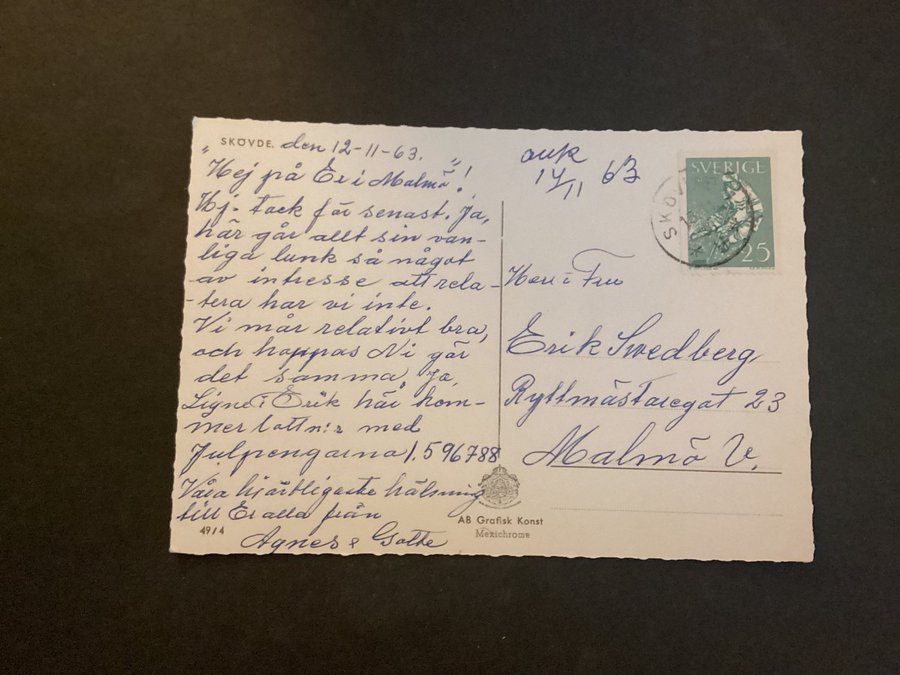 SKÖVDE. den 12-11-63.
"Hej på Er i Malmö"!
Hj. tack för senast. Ja,
här går allt sin van-
liga lunk så något
av intresse att rela-
-tera har vi inte.
Vi mår relativt bra,
och hoppas Ni gör
det samma. Ja,
Signe i Erik här kom-
mer lottn:r med
Julpengarna 1.596788
Våra hjärtligaste hälsning
till Er alla från
Agnes & Gotte
49/4
ank
14/11 63
SVERIGE
25
SKÖVDE
Herr i Fru
Erik Swedberg
Ryttmästaregat 23
Malmö V.
AB Grafisk Konst
Mexichrome